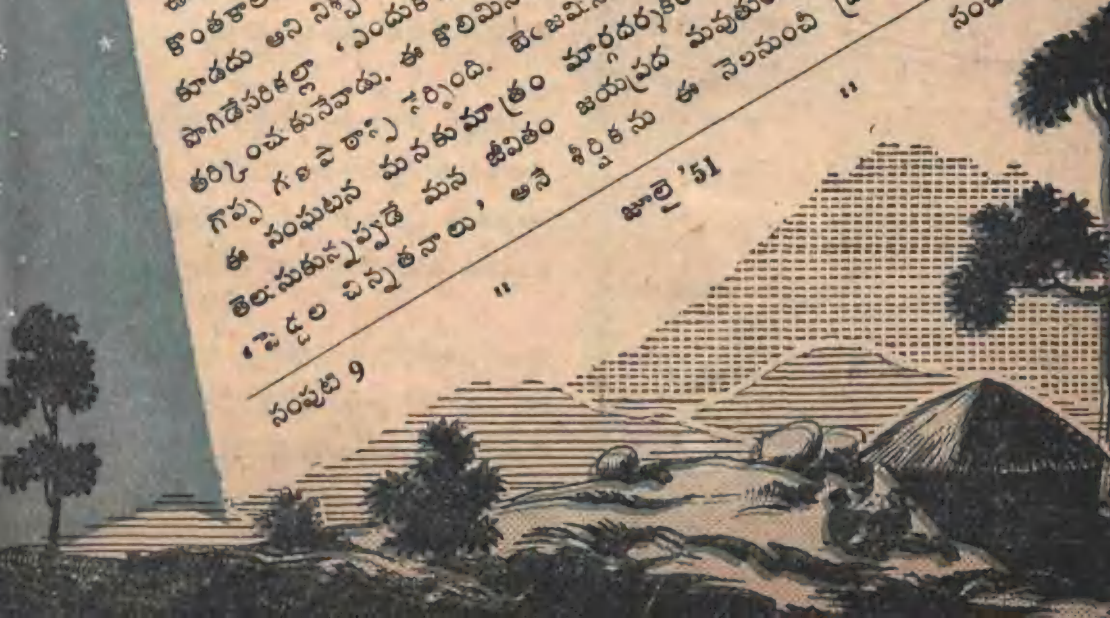 కొంతకాల
కూడదు అని నిశ్చ
పొగిడేసరికల్లా 'ఎందుక
తర్కించుకునేవాడు. ఈ కొలిమిన
గొప్ప గుణపాఠాన్ని నేర్పింది. బెంజమిన
ఈ సంఘటన మనకు మాత్రం మార్గదర్శకం
తెలుసుకున్నప్పుడే మన జీవితం జయప్రద మవుతుం
'పెద్దల చిన్నతనాలు' అనే శీర్షికను ఈ నెలనుంచీ ప్ర
సంపుటి 9 " జూలై '51 " సంచ